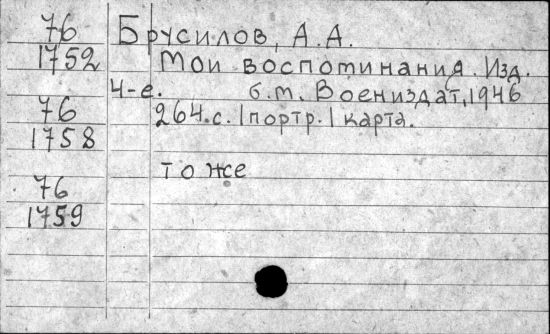 76 Брусилов, А.А.
1752 Мои воспоминания. Изд.
4-е. б.м. Воениздат, 1946
76 264.с. 1портр. 1 карта.
1758
то же
76
1759